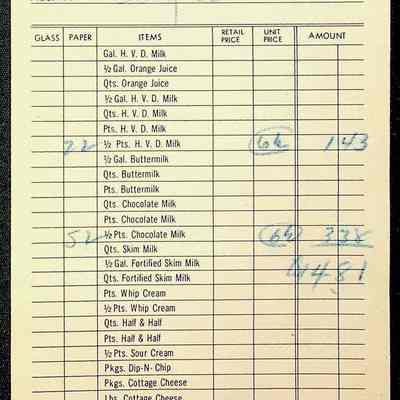 GLASS PAPER ITEMS RETAIL PRICE UNIT PRICE AMOUNT
Gal. H. V. D. Milk
½ Gal. Orange Juice
Qts. Orange Juice
½ Gal. H. V. D. Milk
Qts. H. V. D. Milk
Pts. H. V. D. Milk
22 ½ Pts. H. V. D. Milk 6½ 143
½ Gal. Buttermilk
Qts. Buttermilk
Pts. Buttermilk
Qts. Chocolate Milk
Pts. Chocolate Milk
52 ½ Pts. Chocolate Milk 6½ 338
Qts. Skim Milk
½ Gal. Fortified Skim Milk 481
Qts. Fortified Skim Milk
Pts. Whip Cream
½ Pts. Whip Cream
Qts. Half & Half
Pts. Half & Half
½ Pts. Sour Cream
Pkgs. Dip-N- Chip
Pkgs. Cottage Cheese
Lbs. Cottage Cheese